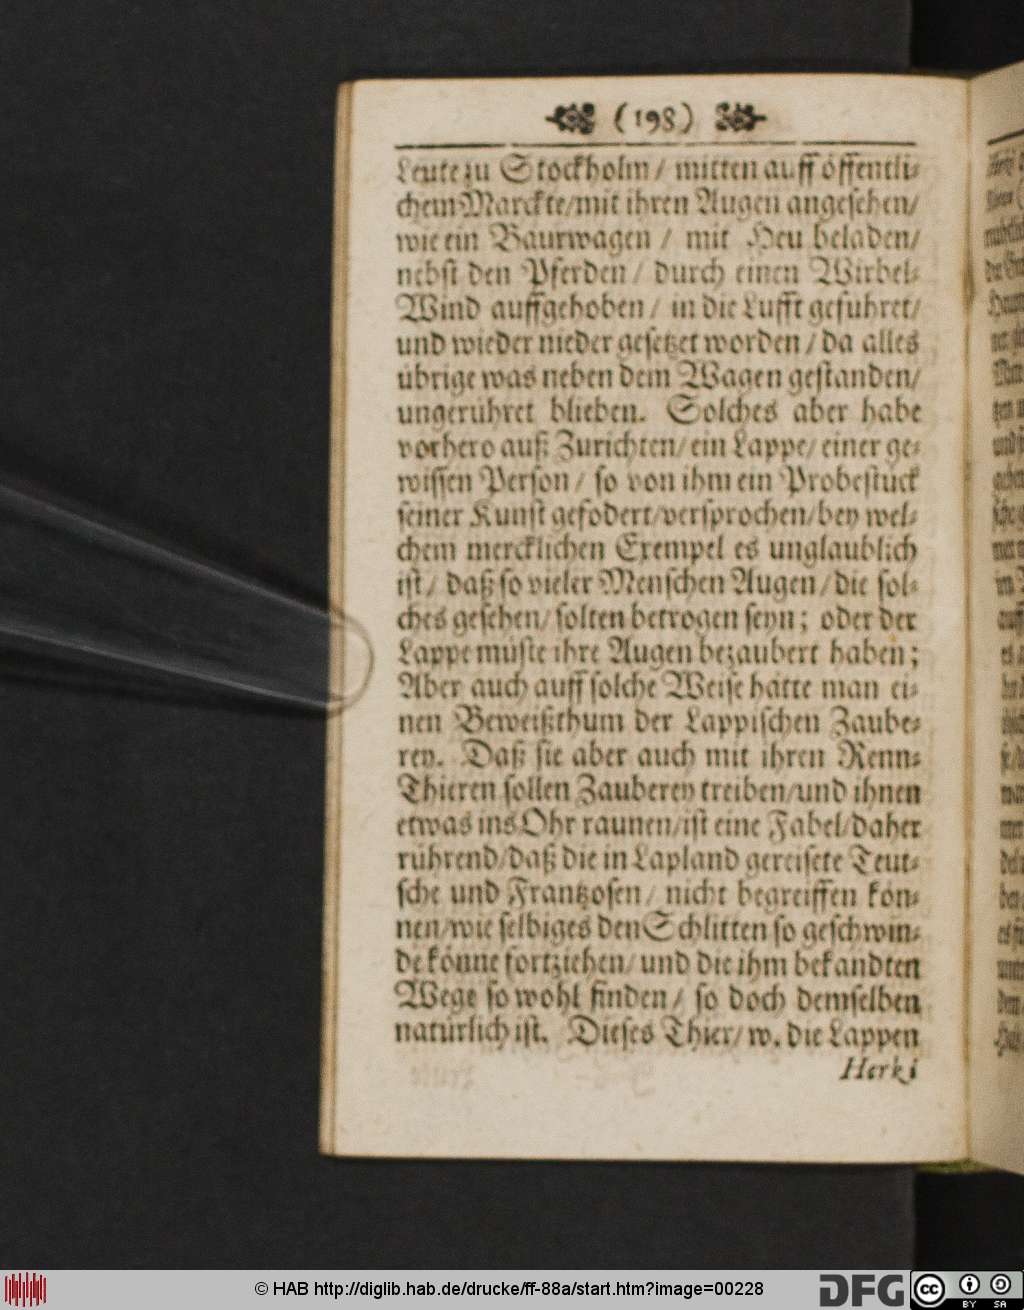 (198)
Leute zu Stockholm / mitten auff öffentli-
chem Marckte/mit ihren Augen angesehen/
wie ein Baurwagen / mit Heu beladen/
nebst den Pferden / durch einen Wirbel-
Wind auffgehoben / in die Lufft geführet/
und wieder nieder gesetzet worden / da alles
übrige was neben dem Wagen gestanden/
ungerühret blieben. Solches aber habe
vorhero auß Zurichten/ ein Lappe/ einer ge-
wissen Person / so von ihm ein Probestück
seiner Kunst gefodert/versprochen/bey wel-
chem mercklichen Exempel es unglaublich
ist / daß so vieler Menschen Augen / die sol-
ches gesehen/ solten betrogen seyn; oder der
Lappe müste ihre Augen bezaubert haben;
Aber auch auff solche Weise hätte man ei-
nen Beweißthum der Lappischen Zaube-
rey. Daß sie aber auch mit ihren Renn-
Thieren sollen Zauberey treiben/und ihnen
etwas ins Ohr raunen/ist eine Fabel/daher
rührend/daß die in Lapland gereisete Teut-
sche und Frantzosen / nicht begreiffen kön-
nen/wie selbiges den Schlitten so geschwin-
de könne fortziehen/ und die ihm bekandten
Wege so wohl finden / so doch demselben
natürlich ist. Dieses Thier/ w. die Lappen
Herki
© HAB http://diglib.hab.de/drucke/ff-88a/start.htm?image=00228
DFG
cc
BY SA